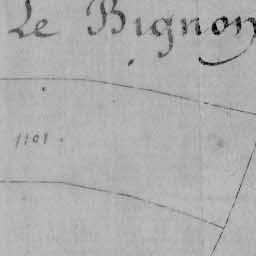 Le Bignon
1101.